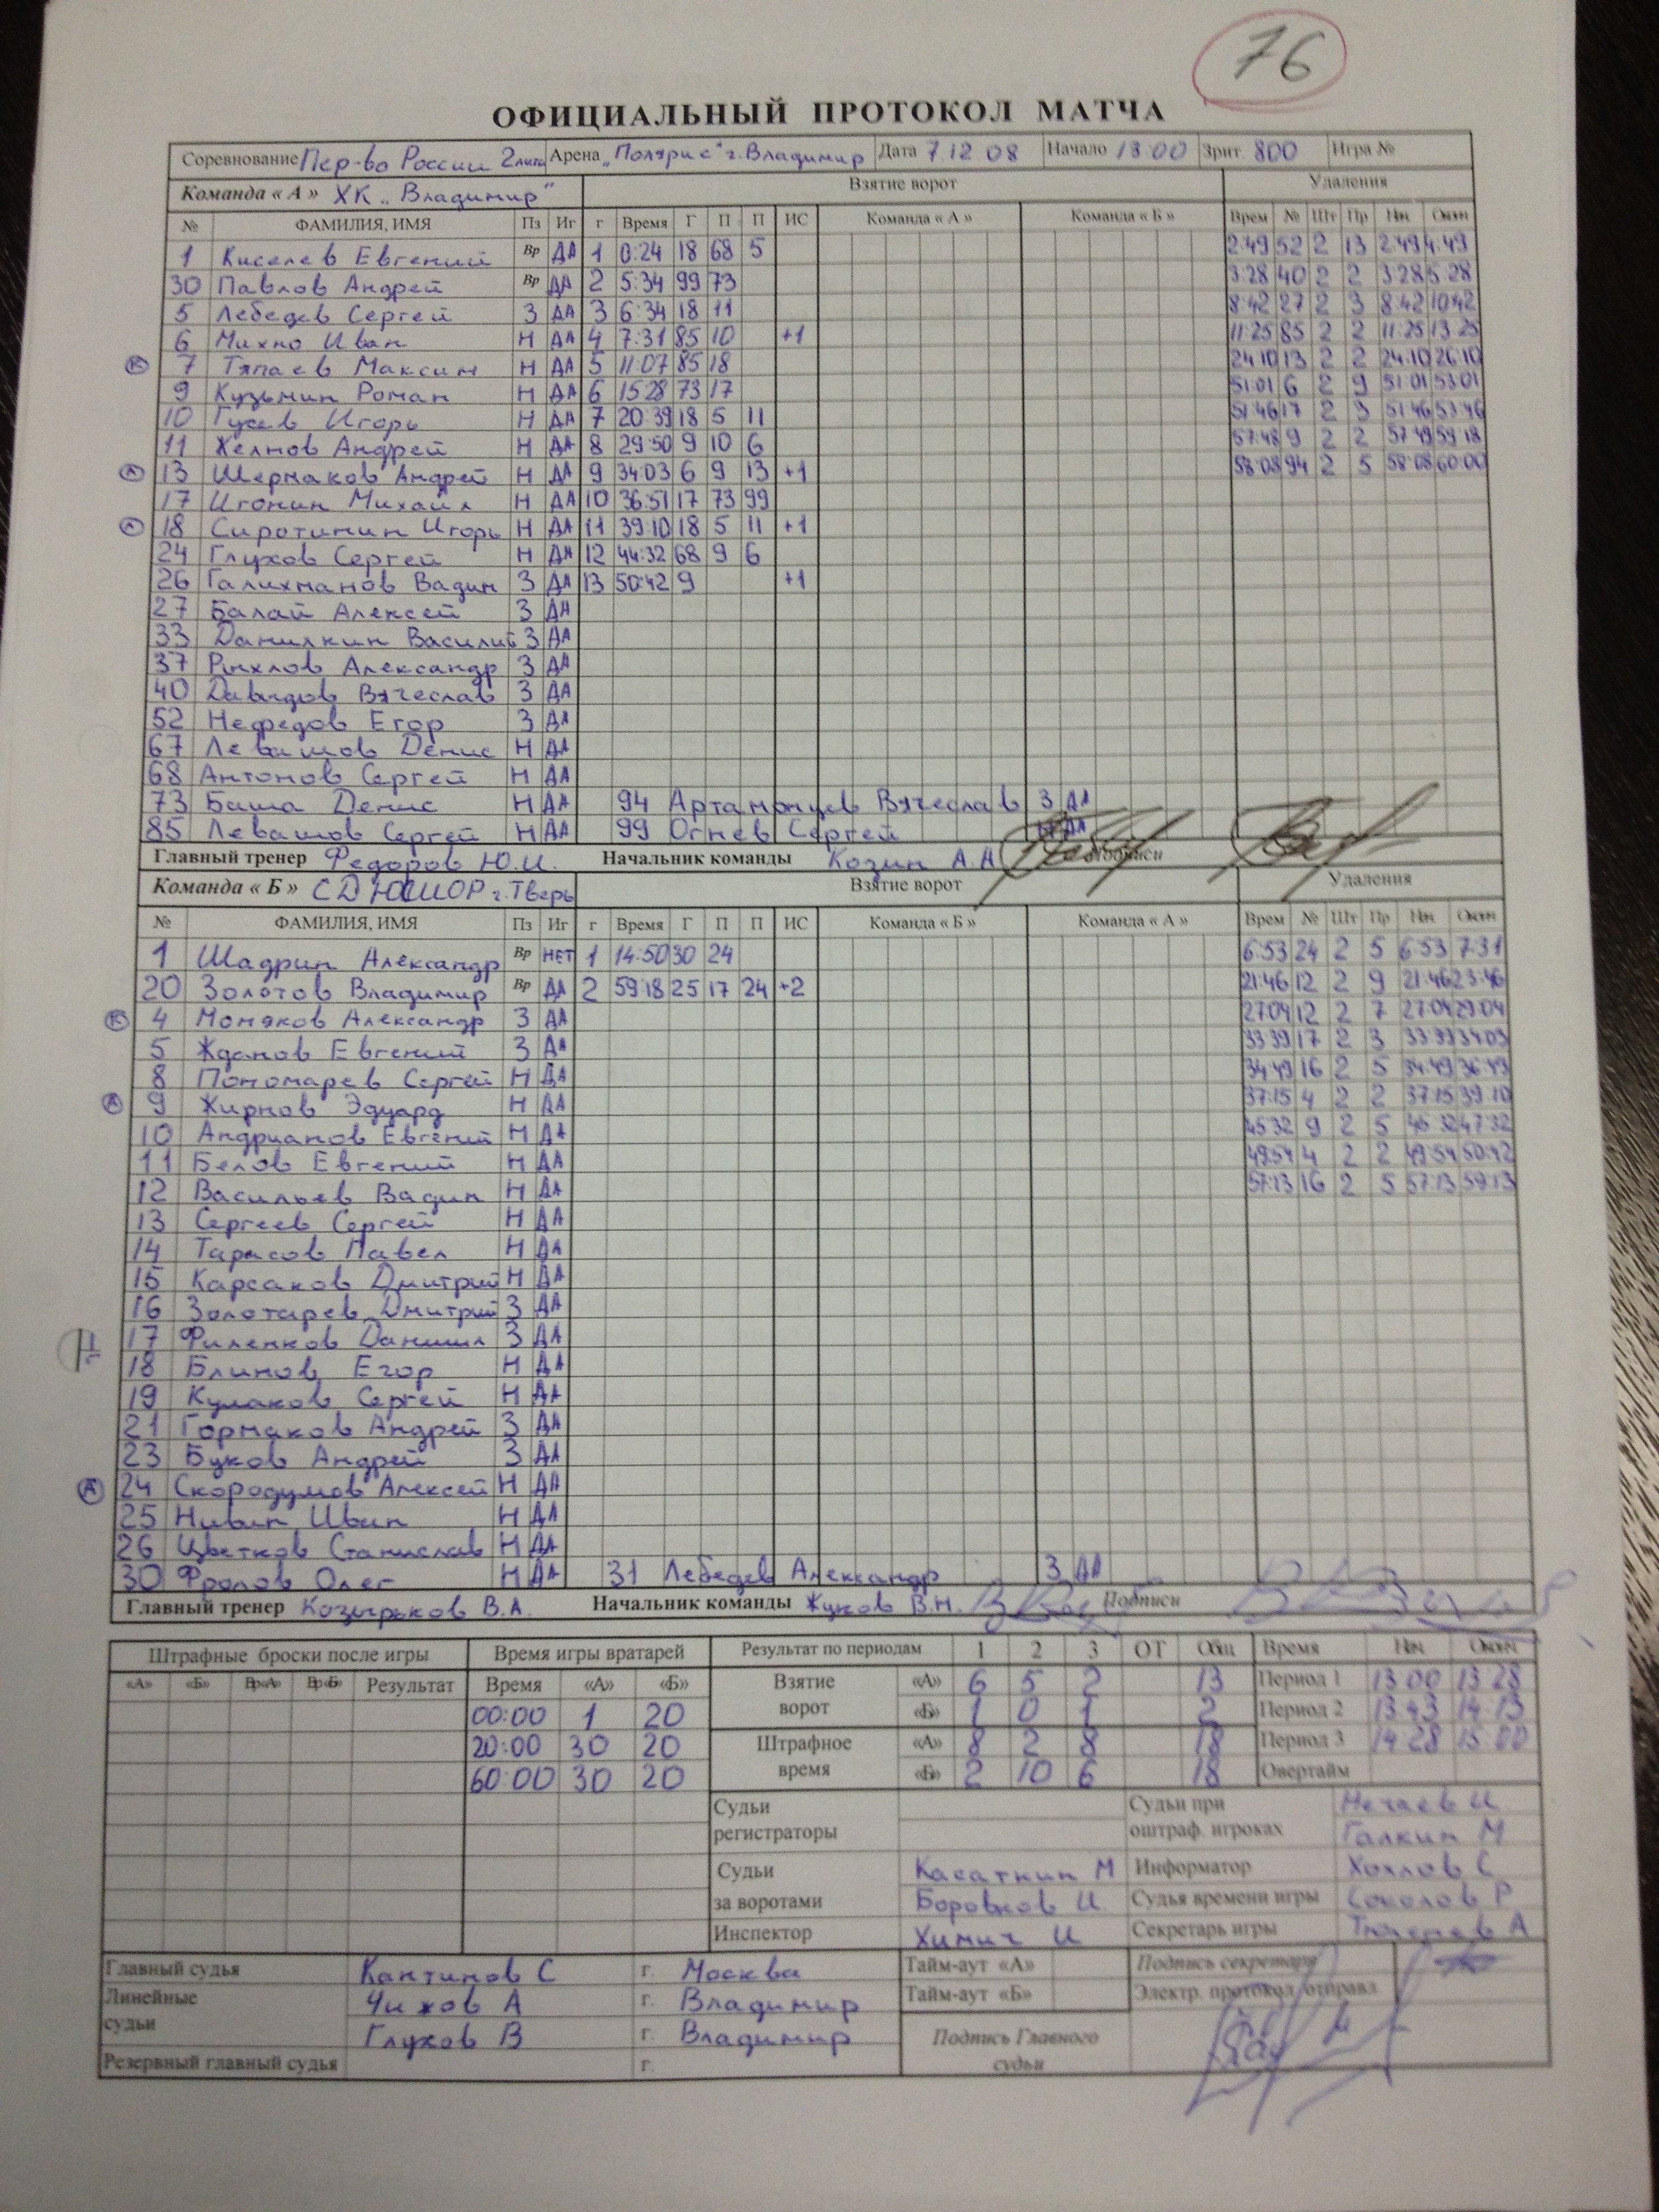 76
ОФИЦИАЛЬНЫЙ ПРОТОКОЛ МАТЧА
Соревнование Пер-во России 2 лига Арена „Полярис" г. Владимир Дата 7.12 08 Начало 13:00 Зрит. 800 Игра №
Команда « А » ХК „Владимир" Взятие ворот Удаления
№ ФАМИЛИЯ, ИМЯ Пз Иг г Время Г П П ИС Команда « А » Команда « Б » Врем № Шт Пр Нач Окон
1 Киселев Евгений Вр ДА 1 0:24 18 68 5 2:49 52 2 13 2:49 4:49
30 Павлов Андрей Вр ДА 2 5:34 99 73 3:28 40 2 2 3:28 5:28
5 Лебедев Сергей З ДА 3 6:34 18 11 8:42 27 2 3 8:42 10:42
6 Михно Иван Н ДА 4 7:31 85 10 +1 11:25 85 2 2 11:25 13:25
К 7 Тяпаев Максим Н ДА 5 11:07 85 18 24:10 13 2 2 24:10 26:10
9 Кузьмин Роман Н ДА 6 15:28 73 17 51:01 6 2 9 51:01 53:01
10 Гусев Игорь Н ДА 7 20:39 18 5 11 51:46 17 2 3 51:46 53:46
11 Желнов Андрей Н ДА 8 29:50 9 10 6 57:48 9 2 2 57:49 59:18
А 13 Шермаков Андрей Н ДА 9 34:03 6 9 13 +1 58:08 94 2 5 58:08 60:00
17 Игонин Михаил Н ДА 10 36:51 17 73 99
А 18 Сиротинин Игорь Н ДА 11 39:10 18 5 11 +1
24 Глухов Сергей Н ДА 12 44:32 68 9 6
26 Галихманов Вадим З ДА 13 50:42 9 +1
27 Балай Алексей З ДА
33 Данилкин Василий З ДА
37 Рыхлов Александр З ДА
40 Давыдов Вячеслав З ДА
52 Нефедов Егор З ДА
67 Левашов Денис Н ДА
68 Антонов Сергей Н ДА
73 Баша Денис Н ДА 94 Артамонцев Вячеслав З ДА
85 Левашов Сергей Н ДА 99 Огнев Сергей Н ДА
Главный тренер Федоров Ю.И. Начальник команды Козин А.Н Подписи
Команда « Б » СДЮСШОР г. Тверь Взятие ворот Удаления
№ ФАМИЛИЯ, ИМЯ Пз Иг г Время Г П П ИС Команда « Б » Команда « А » Врем № Шт Пр Нач Окон
1 Шадрин Александр Вр НЕТ 1 14:50 30 24 6:53 24 2 5 6:53 7:31
20 Золотов Владимир Вр ДА 2 59:18 25 17 24 +2 21:46 12 2 9 21:46 23:46
К 4 Моняков Александр З ДА 27:04 12 2 7 27:04 29:04
5 Жданов Евгений З ДА 33:39 17 2 3 33:39 34:03
8 Пономарев Сергей Н ДА 34:49 16 2 5 34:49 36:49
А 9 Жирнов Эдуард Н ДА 37:15 4 2 2 37:15 39:10
10 Андрианов Евгений Н ДА 45:32 9 2 5 45:32 47:32
11 Белов Евгений Н ДА 49:54 4 2 2 49:54 50:42
12 Васильев Вадим Н ДА 57:13 16 2 5 57:13 59:13
13 Сергеев Сергей Н ДА
14 Тарасов Павел Н ДА
15 Карсаков Дмитрий Н ДА
16 Золотарев Дмитрий З ДА
17 Филенков Даниил З ДА
18 Блинов Егор Н ДА
19 Кулаков Сергей Н ДА
21 Гормаков Андрей З ДА
23 Буков Андрей З ДА
А 24 Скородумов Алексей Н ДА
25 Нивин Иван Н ДА
26 Цветков Станислав Н ДА
30 Фролов Олег Н ДА 31 Лебедев Александр З ДА
Главный тренер Козырьков В.А. Начальник команды Жуков В.Н. Подписи
Штрафные броски после игры Время игры вратарей Результат по периодам 1 2 3 ОТ Общ Время Нач Окон
«А» «Б» Вр«А» Вр«Б» Результат Время «А» «Б» Взятие ворот «А» 6 5 2 13 Период 1 13 00 13 28
00:00 1 20 «Б» 1 0 1 2 Период 2 13 43 14 13
20:00 30 20 Штрафное время «А» 8 2 8 18 Период 3 14 28 15 00
60:00 30 20 «Б» 2 10 6 18 Овертайм
Судьи регистраторы Судьи при оштраф. игроках Нечаев И
Галкин М
Судьи за воротами Касаткин М Информатор Хохлов С
Боровков И. Судья времени игры Соколов Р
Инспектор Химич И Секретарь игры А
Главный судья Кантинов С г. Москва Тайм-аут «А» Подпись секретаря
Линейные судьи Чижов А г. Владимир Тайм-аут «Б» Электр. протокол отправл
Глухов В г. Владимир Подпись Главного судьи
Резервный главный судья г.